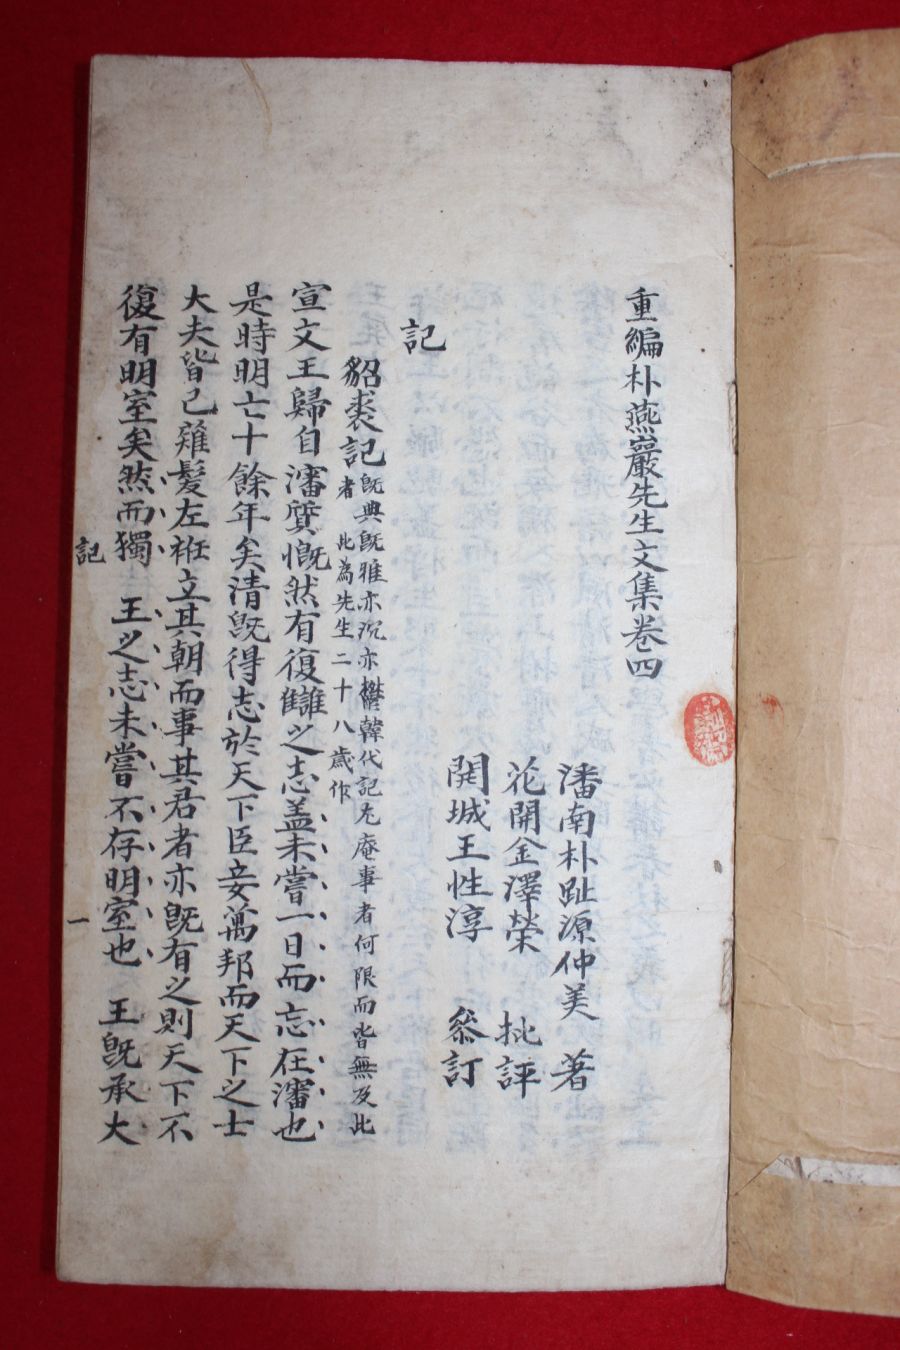 重編朴燕巖先生文集卷四
潘南朴趾源仲美 著
花開金澤榮 批評
開城王性淳 叅訂
記
貂裘記
既典既雅亦沉亦欝韓代記尤庵事者何限而皆無及此
者 此為先生二十八歲作
宣文王歸自瀋質慨然有復讎之志盖未嘗一日而忘在瀋也
是時明亡十餘年矣清既得志於天下臣妾萬邦而天下之士
大夫皆已薙髮左袵立其朝而事其君者亦既有之則天下不
復有明室矣然而獨 王之志未嘗不存明室也 王既承大
記
一